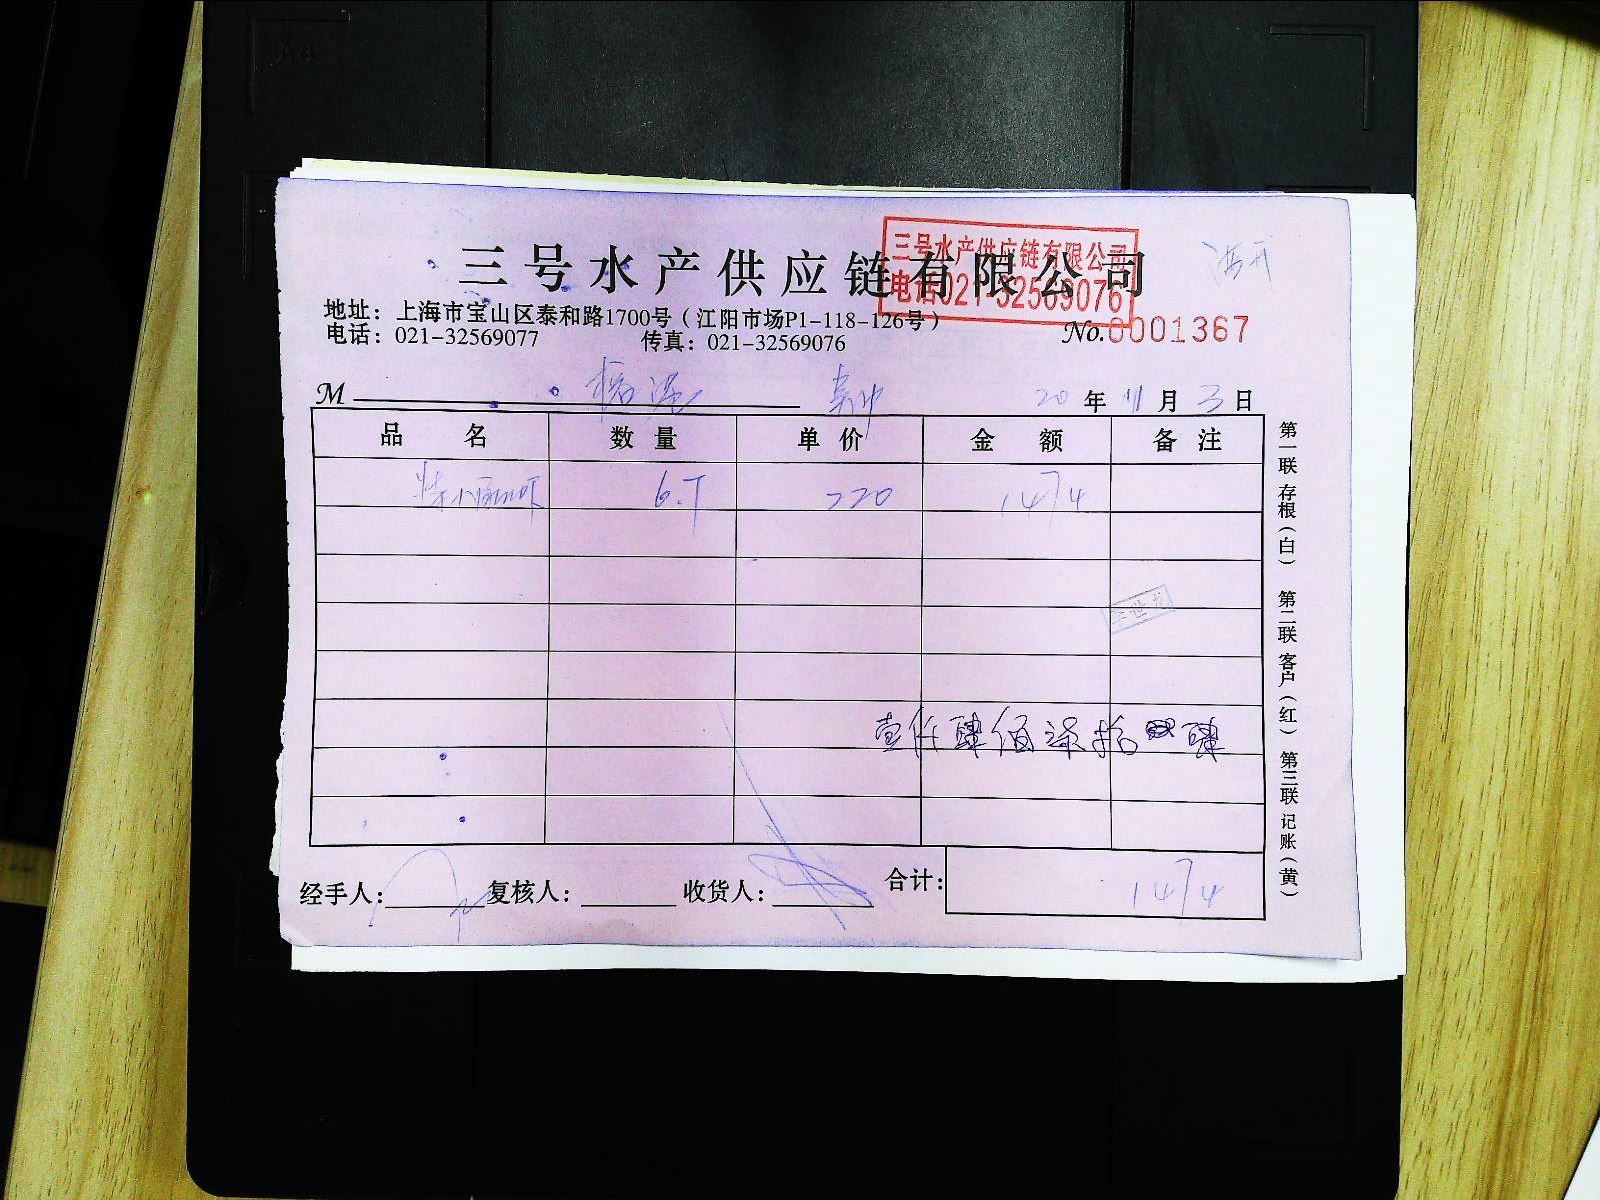 三号水产供应链有限公司
三号水产供应链有限公司
电话021-32569076
地址：上海市宝山区泰和路1700号（江阳市场P1-118-126号）
电话：021-32569077 传真：021-32569076
No.0001367
M 20年11月3日
品名 数量 单价 金额 备注
6.7 220 1474
壹仟肆佰柒拾肆
合计：1474
经手人： 复核人： 收货人：
第一联 存根（白） 第二联 客户（红） 第三联 记账（黄）